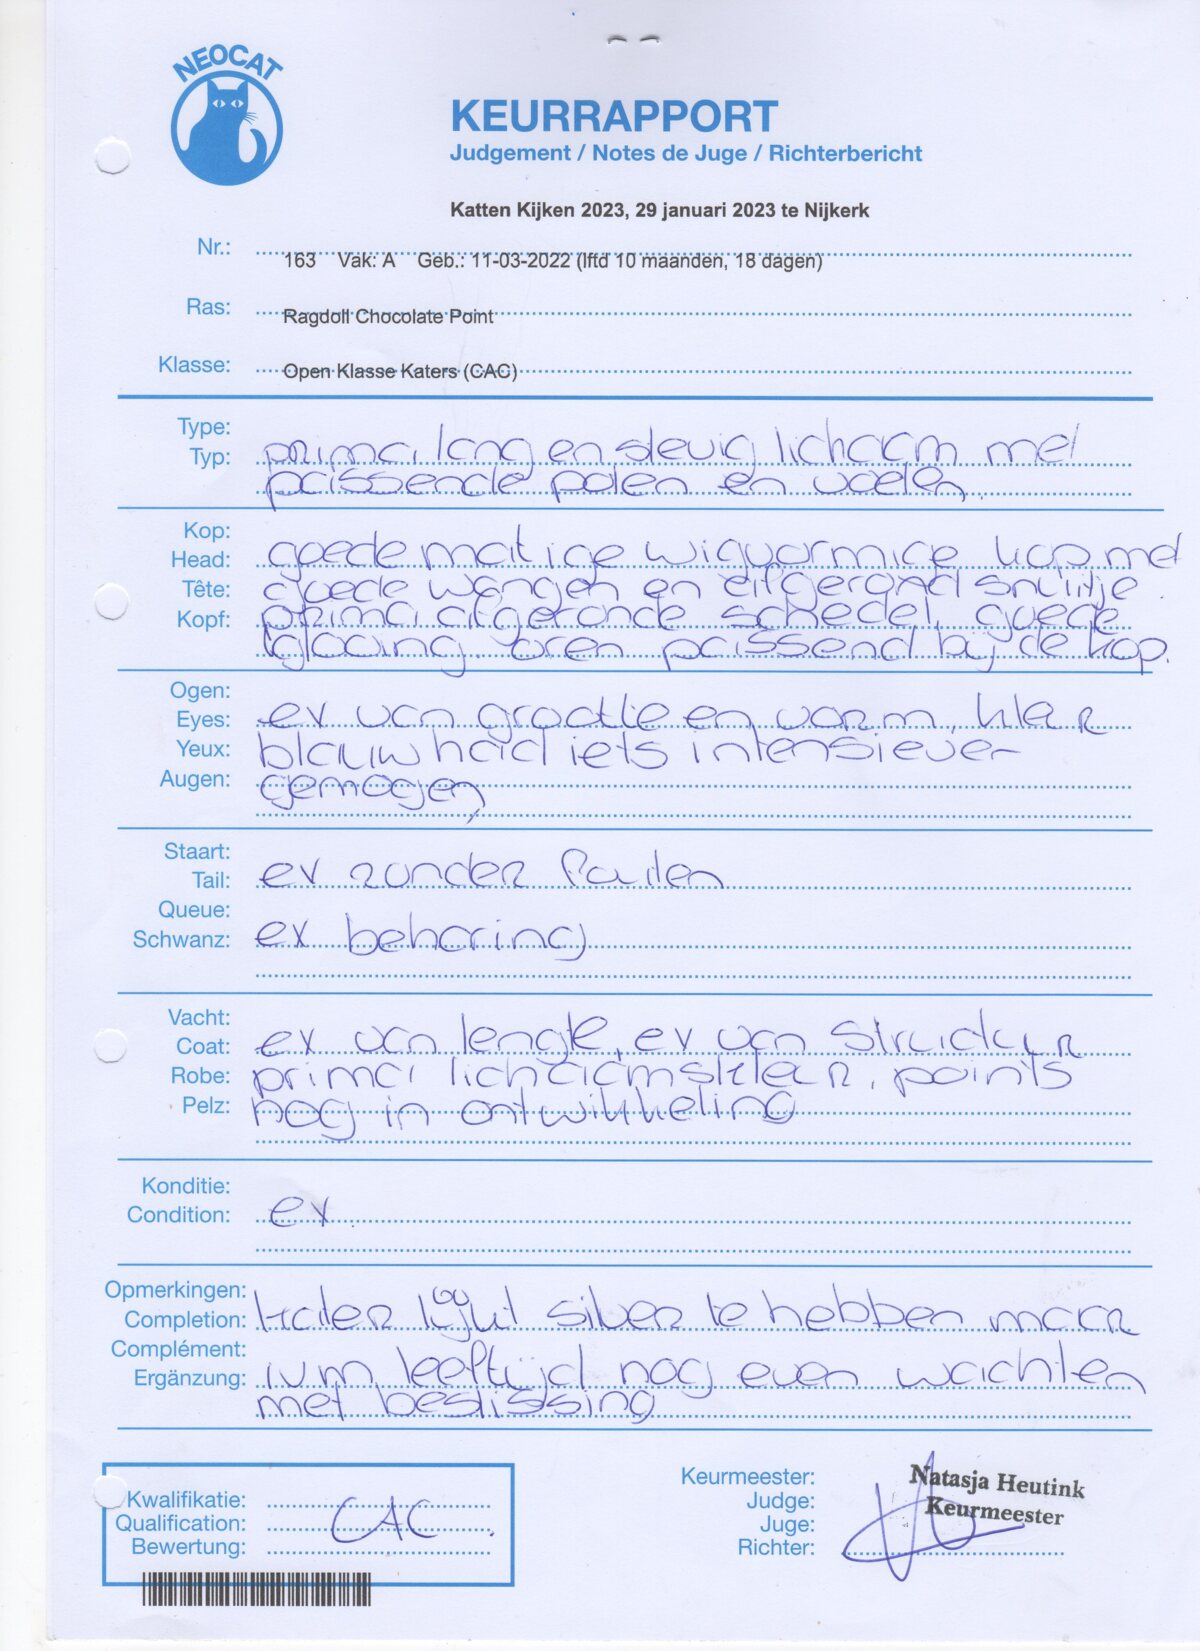 NEOCAT
KEURRAPPORT
Judgement / Notes de Juge / Richterbericht
Katten Kijken 2023, 29 januari 2023 te Nijkerk
Nr.: 163 Vak: A Geb.: 11-03-2022 (lftd 10 maanden, 18 dagen)
Ras: Ragdoll Chocolate Point
Klasse: Open Klasse Katers (CAC)
Type:
Typ: prima lang en stevig lichaam met
passende poten en voeten
Kop:
Head: goede matige wigvormige kop met
Tête: goede wangen en afgerond snuitje
Kopf: prima afgeronde schedel, goede
glooiing oren passend bij de kop.
Ogen:
Eyes: ex van grootte en vorm, kleur
Yeux: blauw had iets intensiever
Augen: gemogen
Staart:
Tail: ex zonder fouten
Queue:
Schwanz: ex beharing
Vacht:
Coat: ex van lengte, ex van structuur
Robe: prima lichaamskleur, points
Pelz: nog in ontwikkeling
Konditie:
Condition: ex.
Opmerkingen:
Completion: Kater lijkt silver te hebben maar
Complément:
Ergänzung: ivm leeftijd nog even wachten
met beslissing
Kwalifikatie:
Qualification: CAC.
Bewertung:
Keurmeester: Natasja Heutink
Judge: Keurmeester
Juge:
Richter: